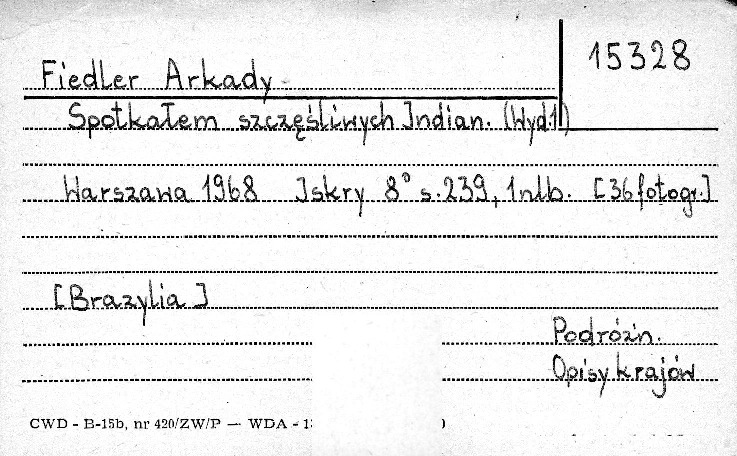 15328
Fiedler Arkady
Spotkałem szczęśliwych Indian. (Wyd.1)
Warszawa 1968 Iskry 8° s.239, 1nlb. [36 fotogr.]
[Brazylia]
Podróżn.
Opisy krajów
CWD - B-15b, nr 420/ZW/P — WDA -